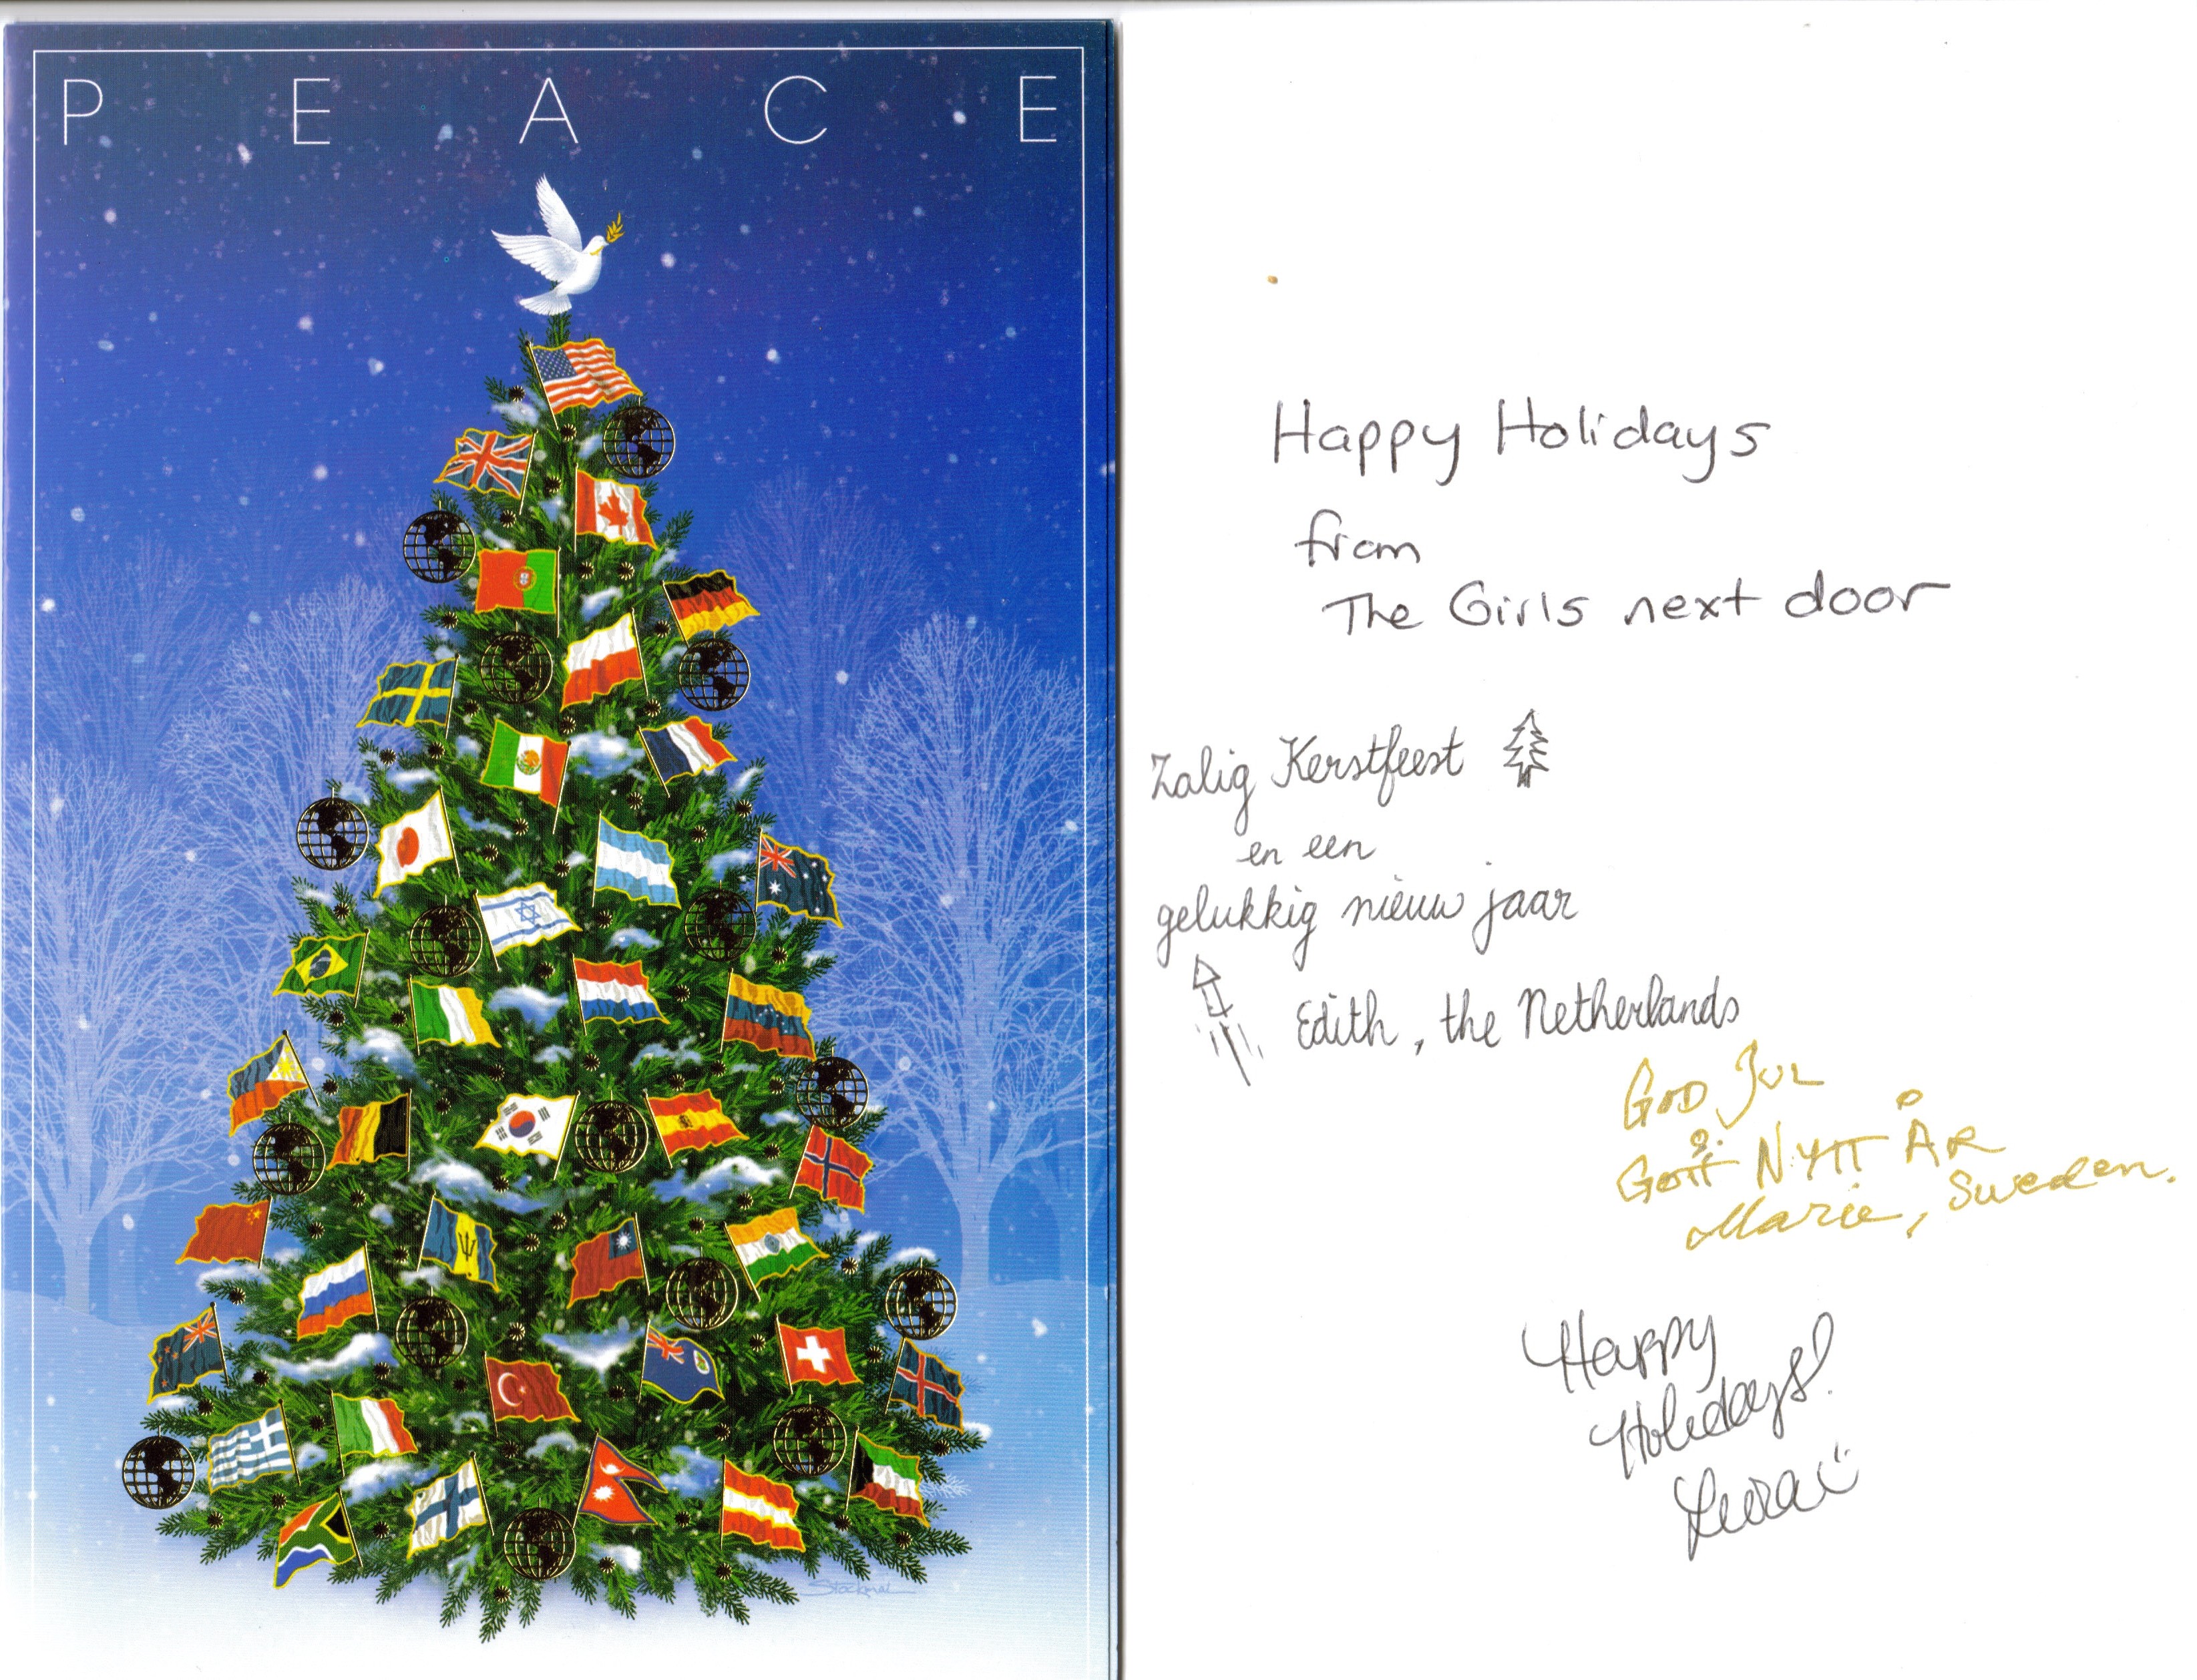 P E A C E
Stockmal
Happy Holidays
from
The Girls next door
Zalig Kerstfeest
en een
gelukkig nieuw jaar
Edith, the Netherlands
GOD JUL
GOTT NYTT ÅR
Marie, Sweden.
Happy
Holidays!